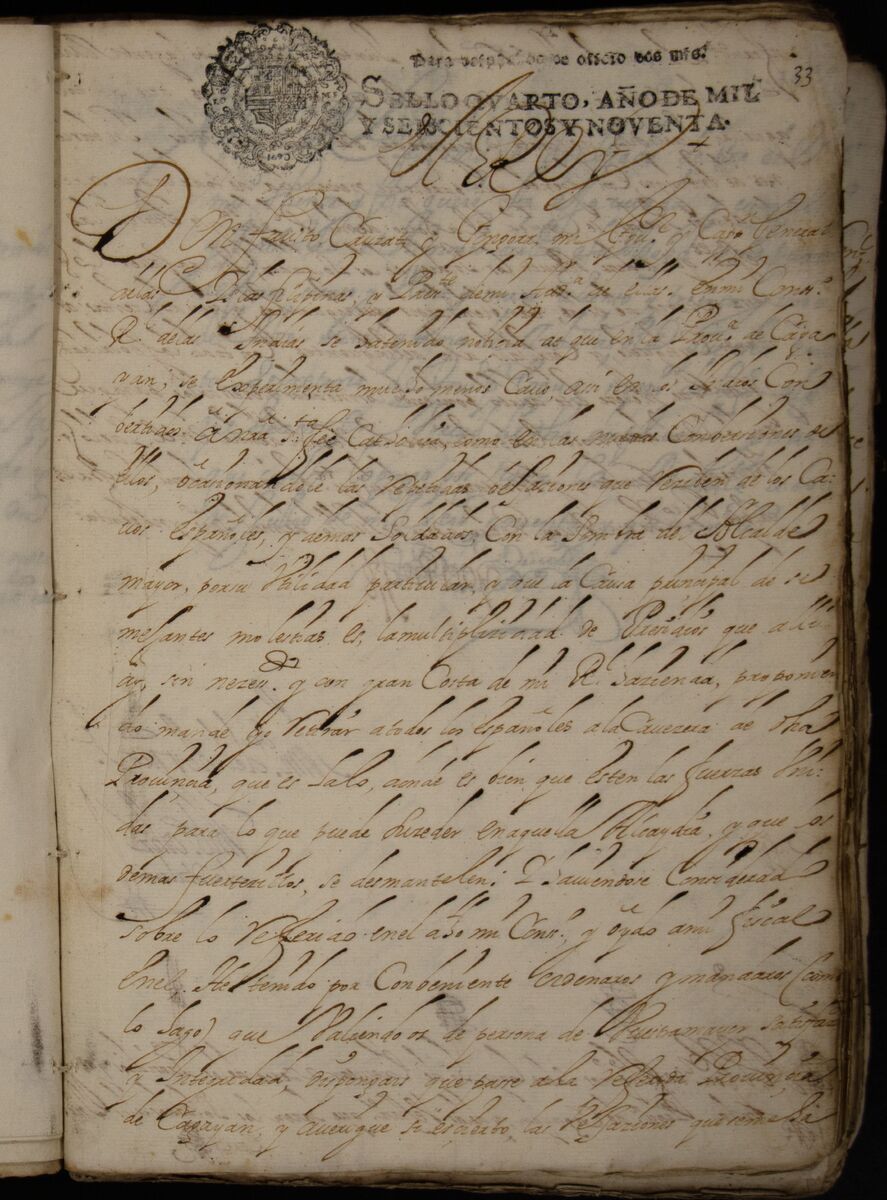 Para despachos de officio dos mrs.
33
SELLO QVARTO, AÑO DE MIL
Y SEISCIENTOS Y NOVENTA.
El Rey
Dn fausto Cruzat y Gongora mi Gouor. y Capn General
de las Islas Philipinas, y Presidte. de mi Audª. de ellas. en mi Consº.
R. de las Indias se ha tenido noticia de que en la Prouª. de Caga
yan, se experimenta mucho menos cauo, assi en los Indios Con
bertidos â nrâ sta. fee Catholica, como en las nueuas Combersiones de
ellos, ocasionandole las Vejaciones que Reciben de los Ca-
uos españoles, y demas Soldados, Con la Sombra del Alcalde
mayor, por su Vtilidad particular, y que la Causa principal de se
mejantes molestias es, la multiplicidad de Presidios que alli
ay, sin nezesd. y con gran Costa de mi Rl. hazienda, proponien
do mande yo Retirar a todos los españoles a la Cauezera de dha
Prouincia, que es Lalo, adonde es bien que esten las fuerzas Vni-
das para lo que puede suzeder en aquella Alcaydia, y que los
demas fuertezillos, se desmantelen; Y hauiendose Considerado
sobre lo Referido en el dho mi Consº, y oydo a mi fiscal
en el. He tenido por Combeniente ordenaros y mandaros (como
lo hago) que Valiendoos de persona de Vuestra mayor satisfaz.
y Integridad, dispongais que pase a la Referida Prouinçia
de Cagayan, y auerigue si es cierto, las Vejaziones que se me ha